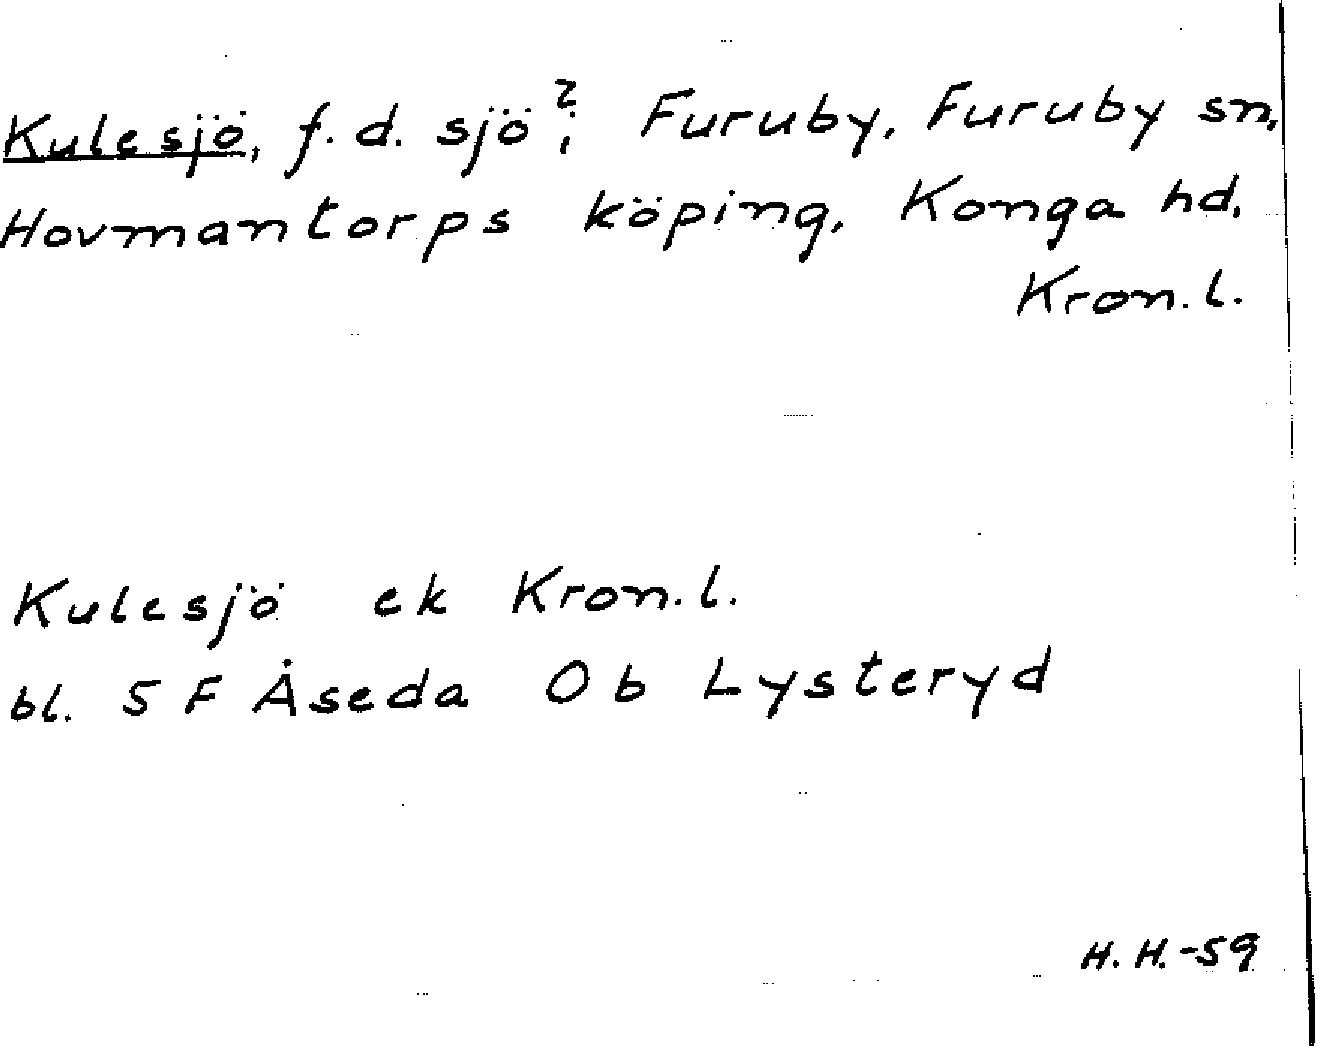 Kulesjö, f. d. sjö?, Furuby, Furuby sn,
Hovmantorps köping, Konga hd,
Kron. l.
Kulesjö ek Kron. l.
bl. 5 F Åseda Ob Lysteryd
H. H. -59